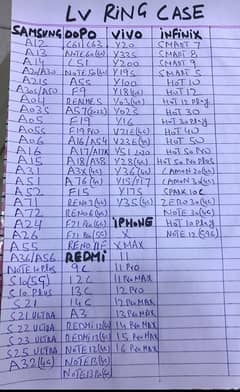 LV RING CASE
SAMSUNG OOPO VIVO INFINIX
A12 C61/C63 Y20 SMART 7
A13 NOTE 60(4G) Y33S SMART 8
A14 C51 Y200 SMART 9
A20/A30 NOTE 50(4G) Y19S SMART 5
A21S A5S Y100 HOT 10
A30S/A50 F9 Y18(4G) HOT 12
A04 REALME 5 Y02(4G) HOT 12 Play
A03S A57(4G) Y02S HOT 30
A05 F19 Y16 HOT 30 Play
A05S F19 PRO V21E(4G) HOT 40
A06 A16/A54 V23E(4G) HOT 50
A16 A17/A17K Y51 2020 HOT 50 PRO
A15 A18/A38 Y28(4G) HOT 50 PRO PLUS
A31 A3X(4G) Y36(4G) CAMON 20(4G)
A51 A76(4G) Y15/Y17 CAMON 30(4G)
A52 F15 Y17S SPARK 10C
A71 RENO 5(4G) Y35(4G) ZERO 30(4G)
A72 RENO 6(4G) NOTE 30(4G)
A24 F21 PRO(4G) IPHONE HOT 10 Play
A26 F21 PRO(5G) X NOTE 12 (G96)
A55 RENO 11F X MAX
A36/A56 REDMI 11
NOTE 10 PLUS 9C 11 PRO
S10(5G) 12C 11 PRO MAX
S10 PLUS 13C 12 PRO
S21 14C 12 PRO MAX
S21 ULTRA A3 13 PRO MAX
S22 ULTRA REDMI 12(4G) 14 PRO MAX
S23 ULTRA REDMI 13(4G) 15 PRO MAX
S25 ULTRA NOTE 12(4G) 16 PRO MAX
A32(4G) NOTE 13(4G)
NOTE 13 PRO(4G)